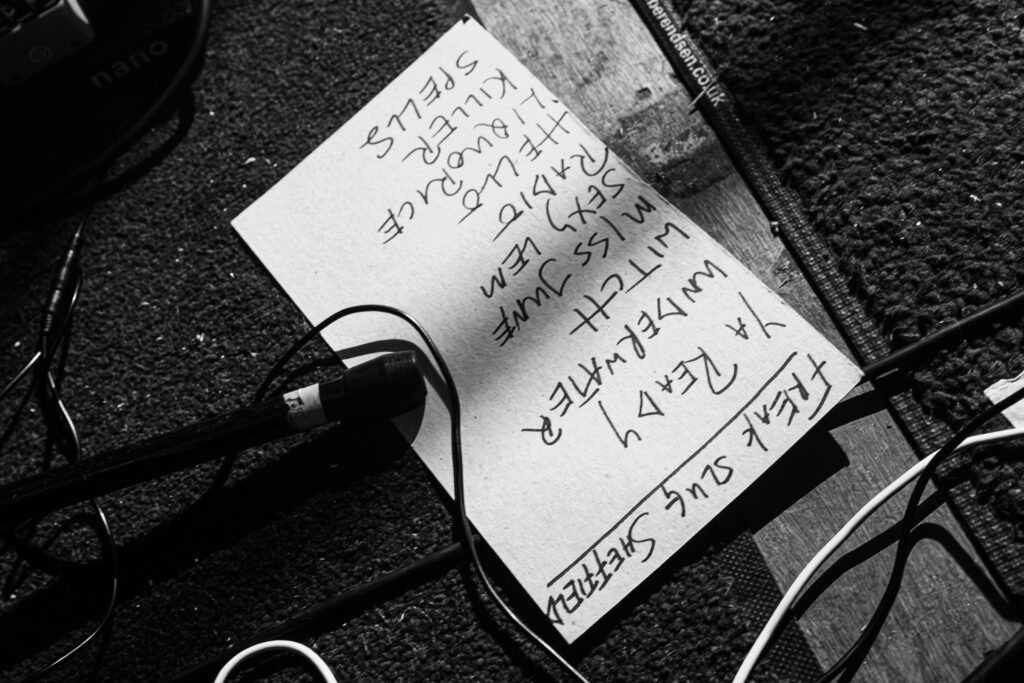 FREAK SLUG SHEFFIELD
YA READY
UNDERWATER
WITCH
MISS JUNE
SEXY LEM
RADIO
HELLO
LIQUORICE
KILLER
SPELLS
nano
berendsen.co.uk